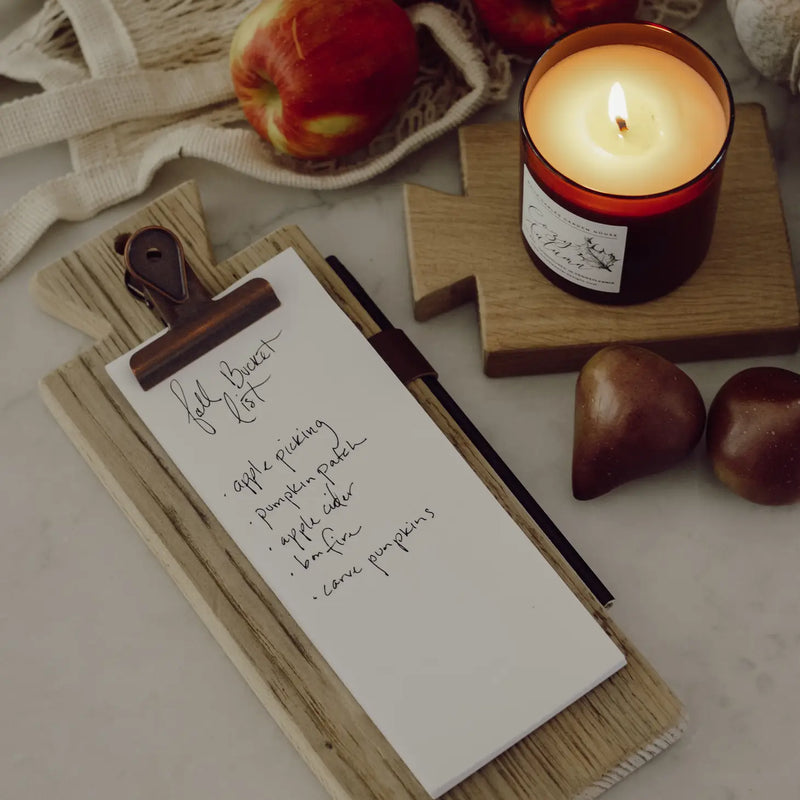 fall Bucket
list
· apple picking
· pumpkin patch
· apple cider
· bonfire
· carve pumpkins
GARDEN HOUSE
Cozy
Autumn